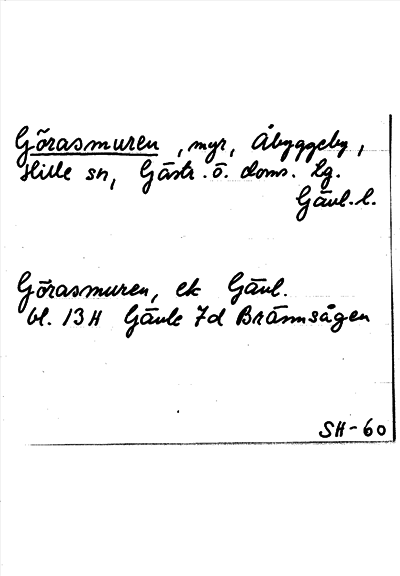 Görasmuren, myr, Åbyggeby,
Hille sn, Gästr. ö. doms. lg.
Gävl. l.
Görasmuren, ek Gävl.
bl. 13H Gävle 7d Brännsågen
SH-60